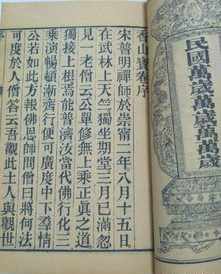 民國萬歲萬歲萬萬歲
香山寶卷序
宋普明禪師於崇甯二年八月十五日
在武林上天竺獨坐期堂三月已滿忽
見一老僧云公單修無上乘正真之道
獨接上根焉能普濟汝當代佛行化三
乘演暢頓漸齊行便可廣度中下羣情
公若如此方報佛恩師問僧曰將何法
可度於人僧答云吾觀此土人與觀世